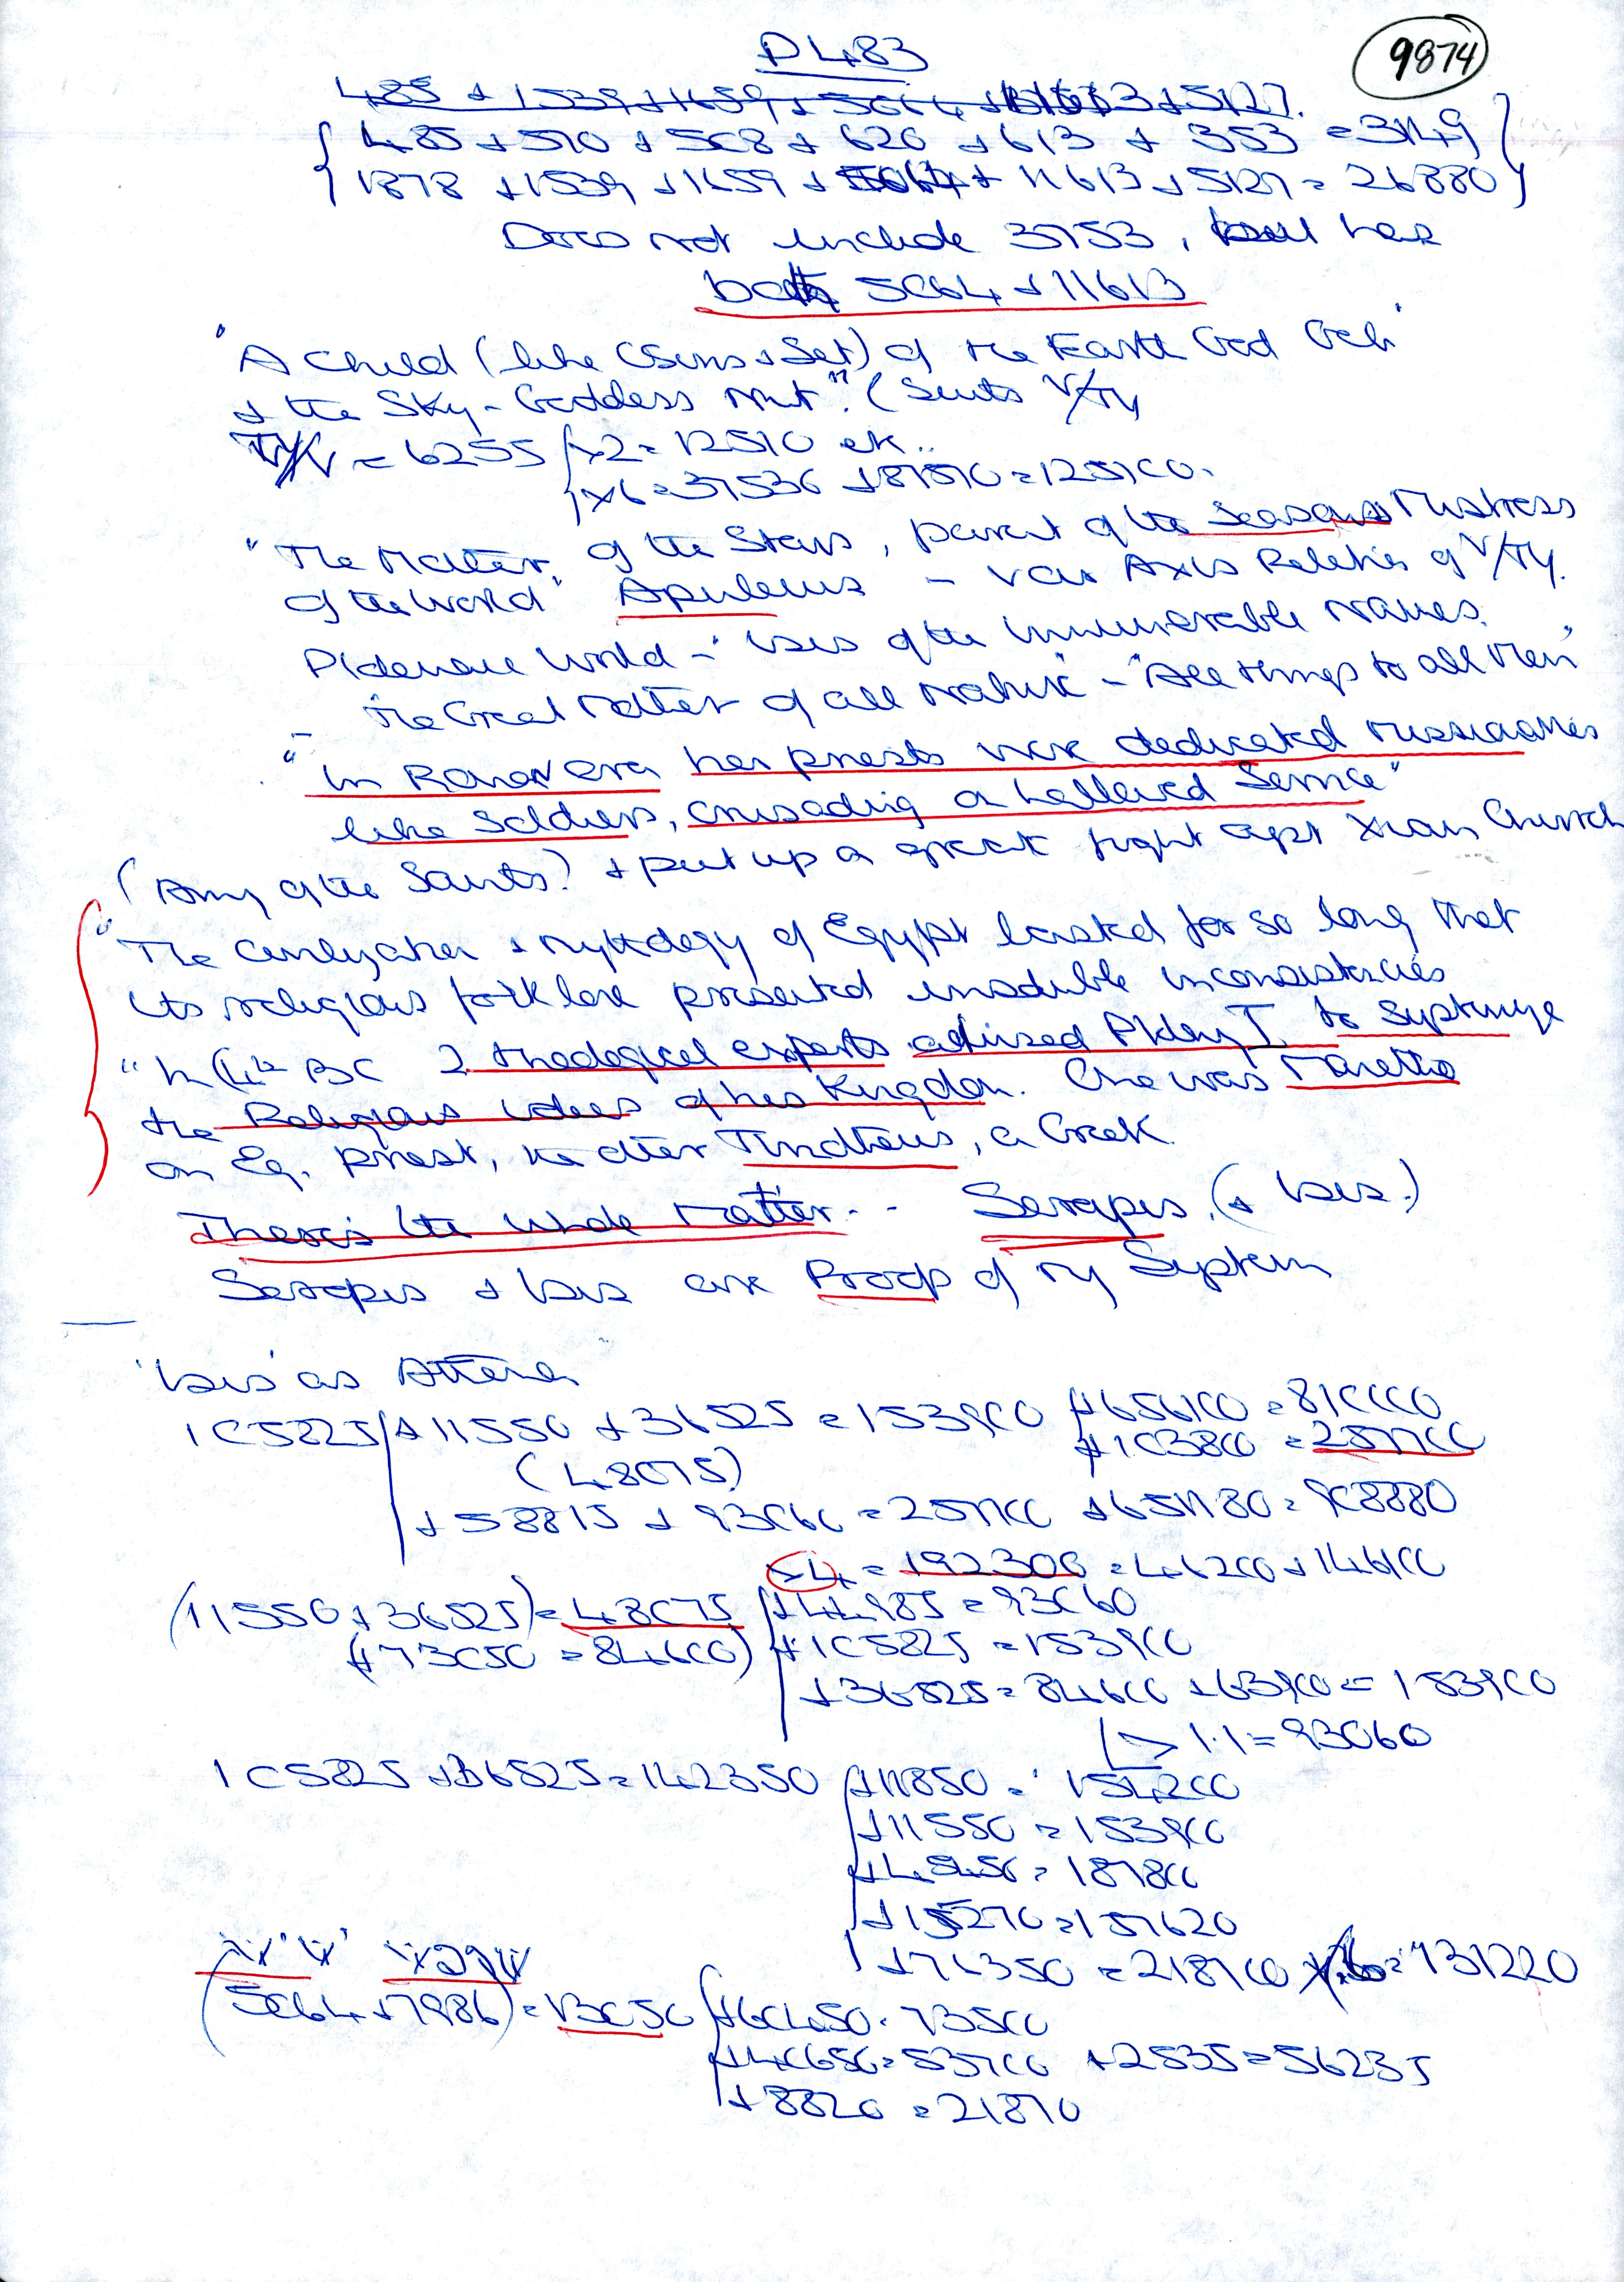 P 483
9874
485 + 1539 + 1659 + 5064 + 11613 + 5127.
485 + 510 + 568 + 620 + 613 + 353 = 3149
1878 + 1539 + 1659 + 5064 + 11613 + 5127 = 26880
Does not include 3753, but has
both 5064 + 11613
"A Child (like Osiris + Set) of the Earth God Geb
+ the Sky-Goddess Nut". (Suits V/TY
TY/V = 6255 x2 = 12510 etc..
x6 = 37536 + 87570 = 125100.
"The Mother, of the Stars, parent of the Seasons Mistress
of the World" Apuleius - via Axis Relation of V/TY.
Ptolemaic World - 'Isis of the innumerable Names.
- The Great Mother of all Nature - "All things to all Men"
"In Roman era her priests were dedicated missionaries
like Soldiers, crusading on hallowed Service"
(Army of the Saints?) + put up a great fight agst Xtian Church
"The Civilization + mythology of Egypt lasted for so long that
its religious folk lore presented insoluble inconsistencies
"In C4th BC 2 theological experts advised Ptolemy I to systemize
the Religious ideas of his Kingdom. One was Manetho
an Eg. priest, the other Timotheus, a Greek.
There's the whole matter.. Serapis. (+ Isis.)
Serapis + Isis are Proof of my System
'Isis' as Athena
105825 + 11550 + 36525 = 153900 + 656100 = 810000
+ 103800 = 257700
(48075)
+ 58815 + 93060 = 257700 + 651180 = 908880
x4 = 192300 = 46200 + 146100
(11550 + 36525) = 48075 + 44985 = 93060
(+73050 = 84600) + 105825 = 153900
+ 36525 = 84600 + 63900 = 153900
> 1.1 = 93060
105825 + 36525 = 142350 + 11850 = 154200
+ 11550 = 153900
+ 45450 = 187800
+ 15270 = 157620
+ 76350 = 218700 = 131220
(5064 + 7986) = 13050 + 60450 = 73500
+ 40650 = 53700 + 2535 = 56235
+ 8820 = 21870